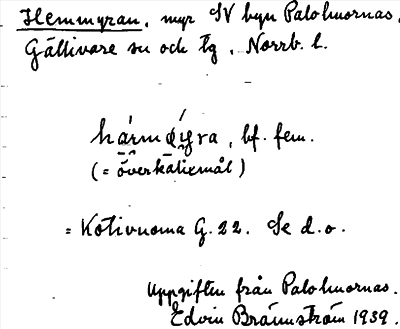 Hemmyran, myr SV byn Palohuornas,
Gällivare sn och tg, Norrb. l.
bf. fem.
(= överkalixmål)
= Kotivuoma G. 22. Se d.o.
Uppgiften från Palohuornas.
Edvin Brännström 1939.